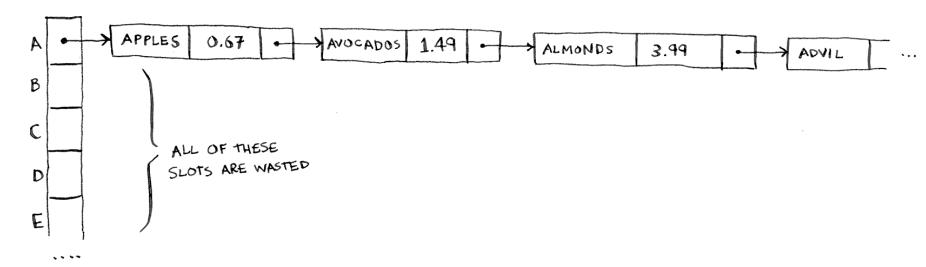 A
APPLES 0.67
AVOCADOS 1.49
ALMONDS 3.99
ADVIL ...
B
C
D
E
....
ALL OF THESE
SLOTS ARE WASTED